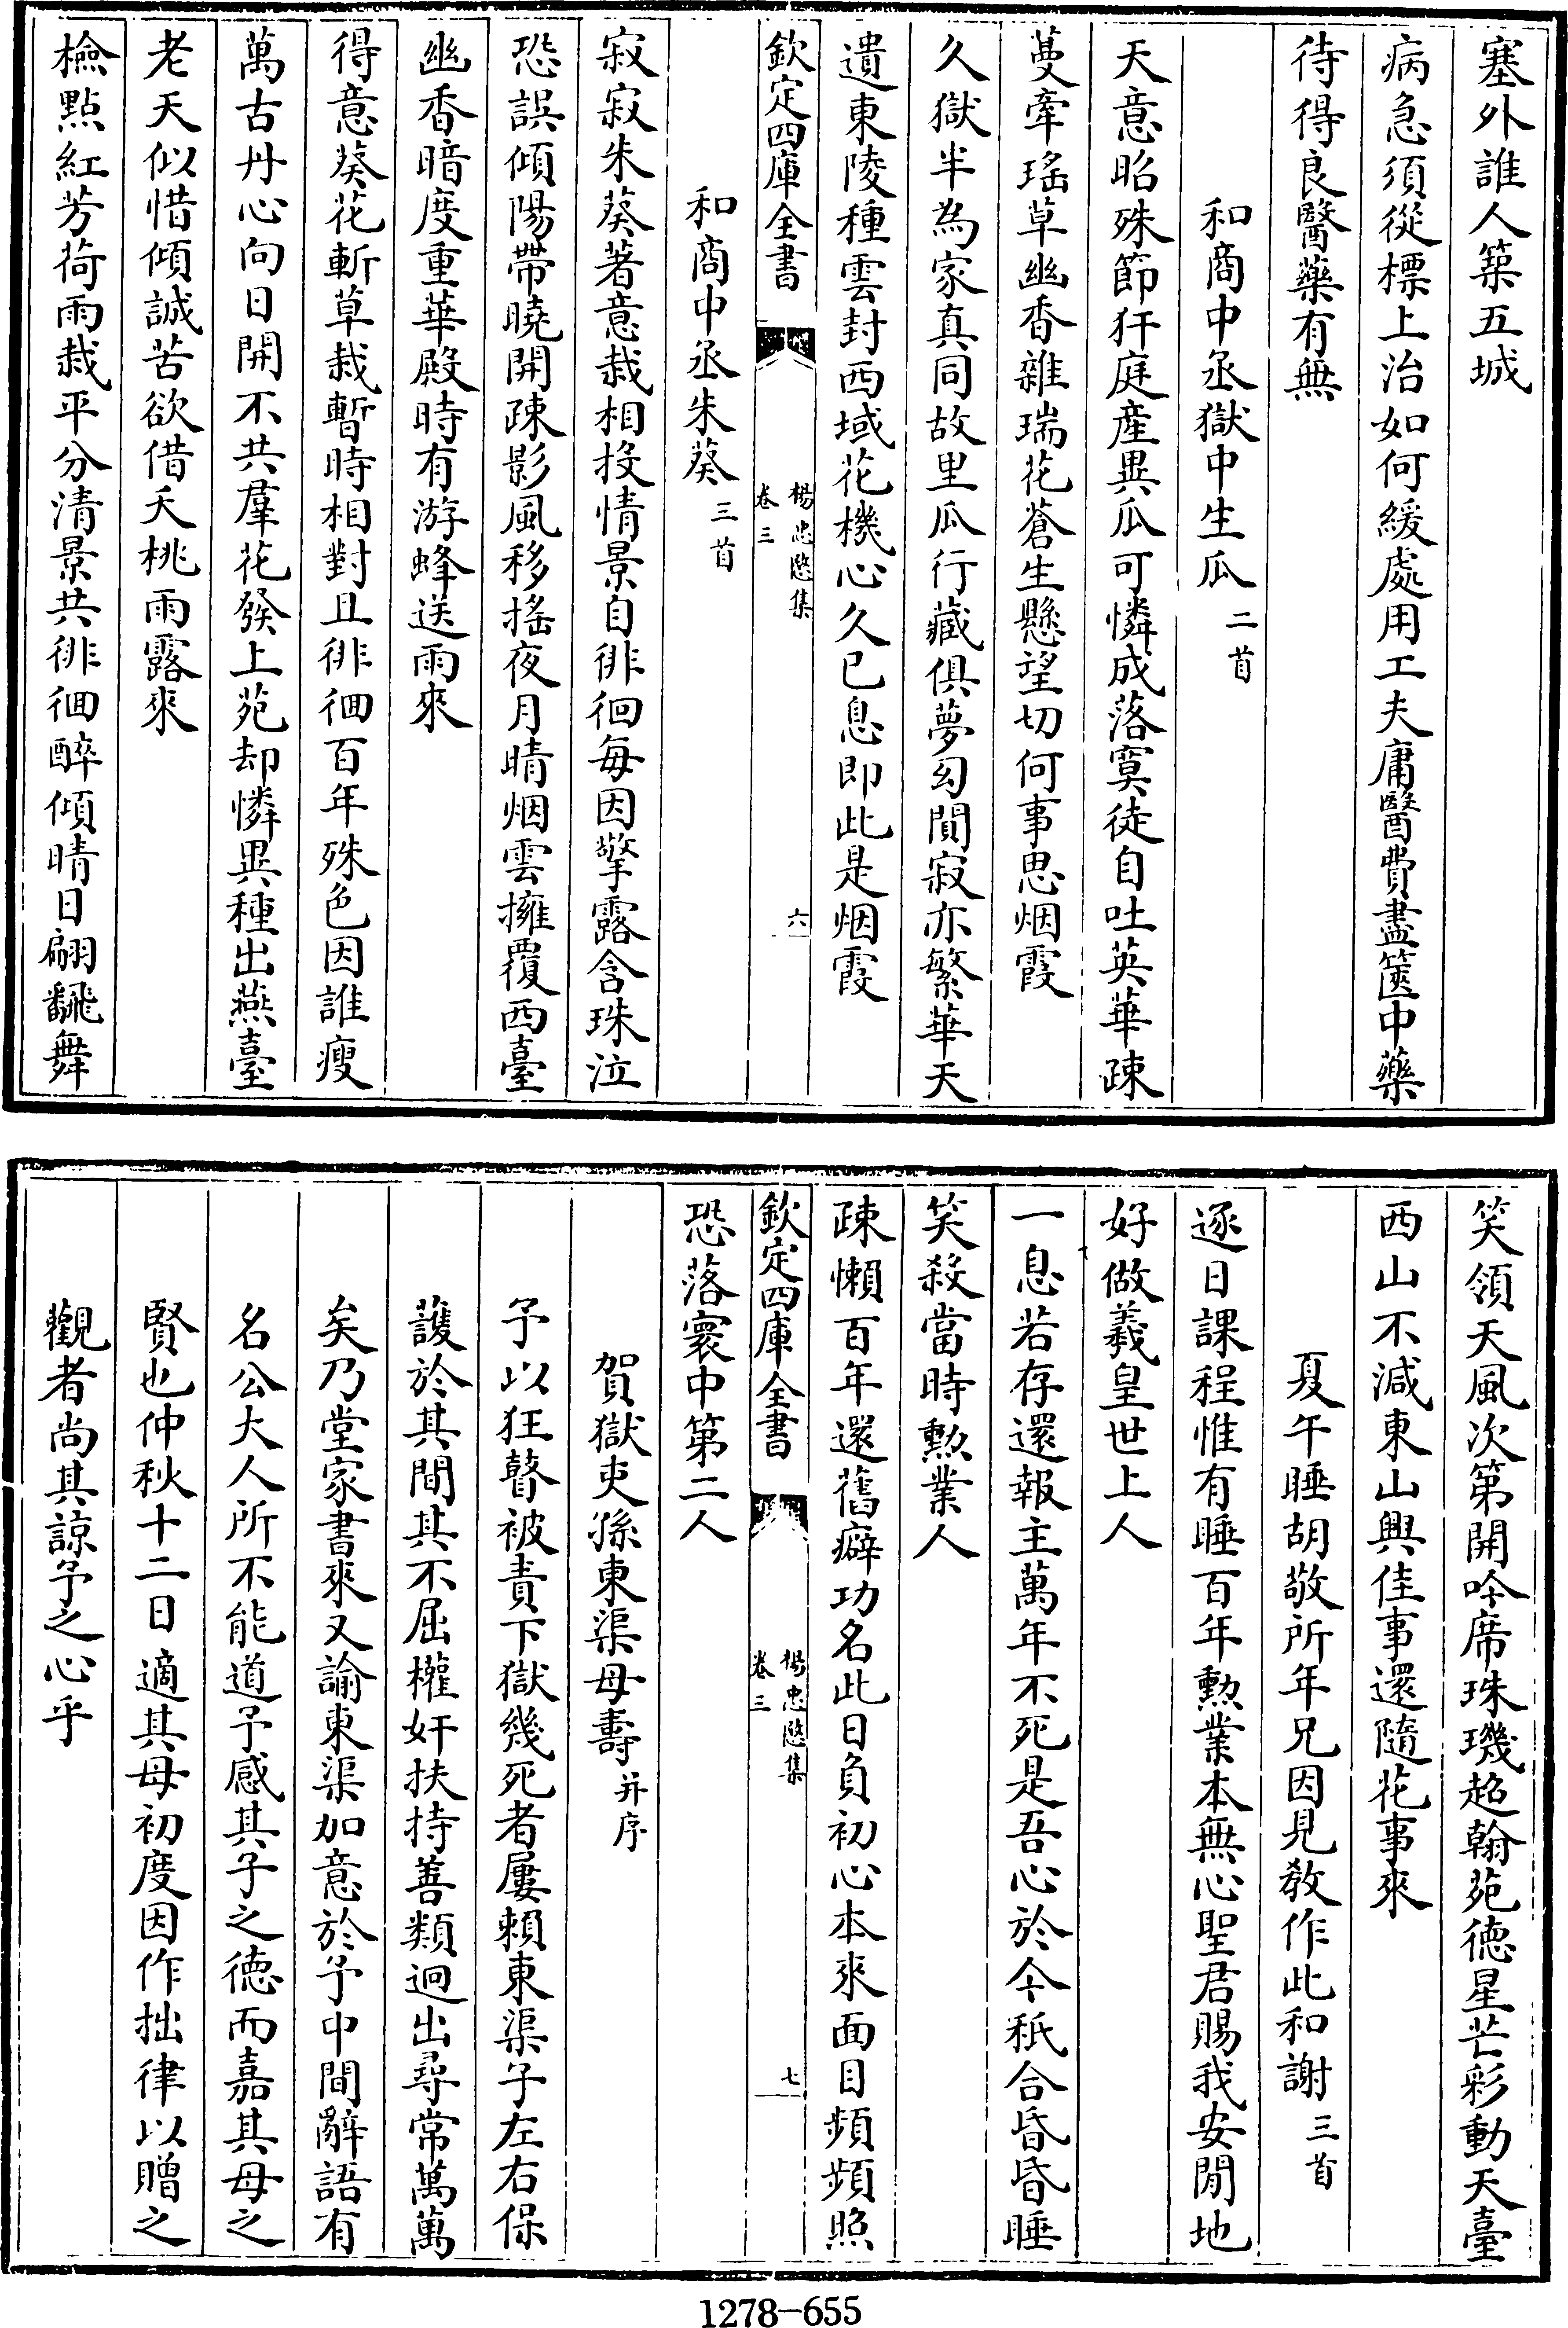 塞外誰人築五城
病急須從標上治如何緩處用工夫庸醫費盡篋中藥
待得良醫藥有無
和商中丞獄中生瓜二首
天意昭殊節犴庭産異瓜可憐成落寞徒自吐英華疎
蔓牽瑤草幽香雜瑞花蒼生懸望切何事思烟霞
久獄半為家真同故里瓜行藏俱夢幻閒寂亦繁華天
遺東陵種雲封西域花機心久已息即此是烟霞
欽定四庫全書
楊忠愍集
卷三
六
和商中丞朱葵三首
寂寂朱葵著意栽相投情景自徘徊每因擎露含珠泣
恐誤傾陽帶曉開疎影風移搖夜月晴烟雲擁覆西臺
幽香暗度重華殿時有游蜂送雨來
得意葵花斬草栽暫時相對且徘徊百年殊色因誰瘦
萬古丹心向日開不共羣花發上苑却憐異種出燕臺
老天似惜傾誠苦欲借夭桃雨露來
檢點紅芳荷雨栽平分清景共徘徊醉傾晴日翩飜舞
笑領天風次第開吟席珠璣超翰苑德星芒彩動天臺
西山不減東山興佳事還隨花事來
夏午睡胡敬所年兄因見教作此和謝三首
逐日課程惟有睡百年勲業本無心聖君賜我安閒地
好做羲皇世上人
一息若存還報主萬年不死是吾心於今秖合昏昏睡
笑殺當時勲業人
疎懶百年還舊癖功名此日負初心本來面目頻頻照
欽定四庫全書
楊忠愍集
卷三
七
恐落寰中第二人
賀獄吏孫東渠母壽并序
予以狂瞽被責下獄幾死者屢賴東渠子左右保
護於其間其不屈權奸扶持善類迥出尋常萬萬
矣乃堂家書來又諭東渠加意於予中間辭語有
名公大人所不能道予感其子之德而嘉其母之
賢也仲秋十二日適其母初度因作拙律以贈之
觀者尚其諒予之心乎
1278-655